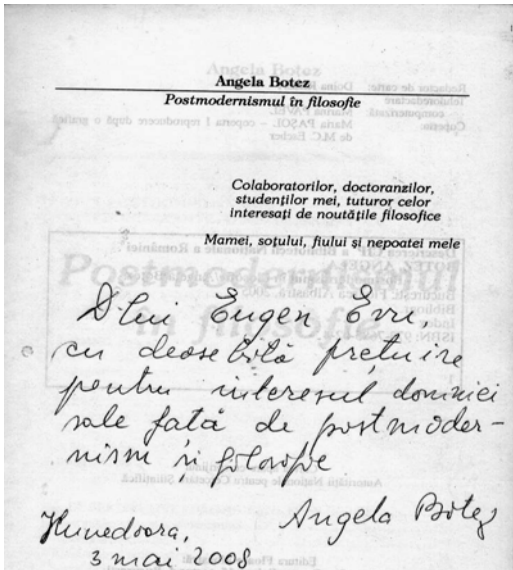 Angela Botez
Postmodernismul în filosofie
Colaboratorilor, doctoranzilor,
studenților mei, tuturor celor
interesați de noutățile filosofice
Mamei, soțului, fiului și nepoatei mele
Dlui Eugen Evu,
cu deosebită prețuire
pentru interesul domniei
sale față de postmoder-
nism în filosofie
Angela Botez
Hunedoara,
3 mai 2008